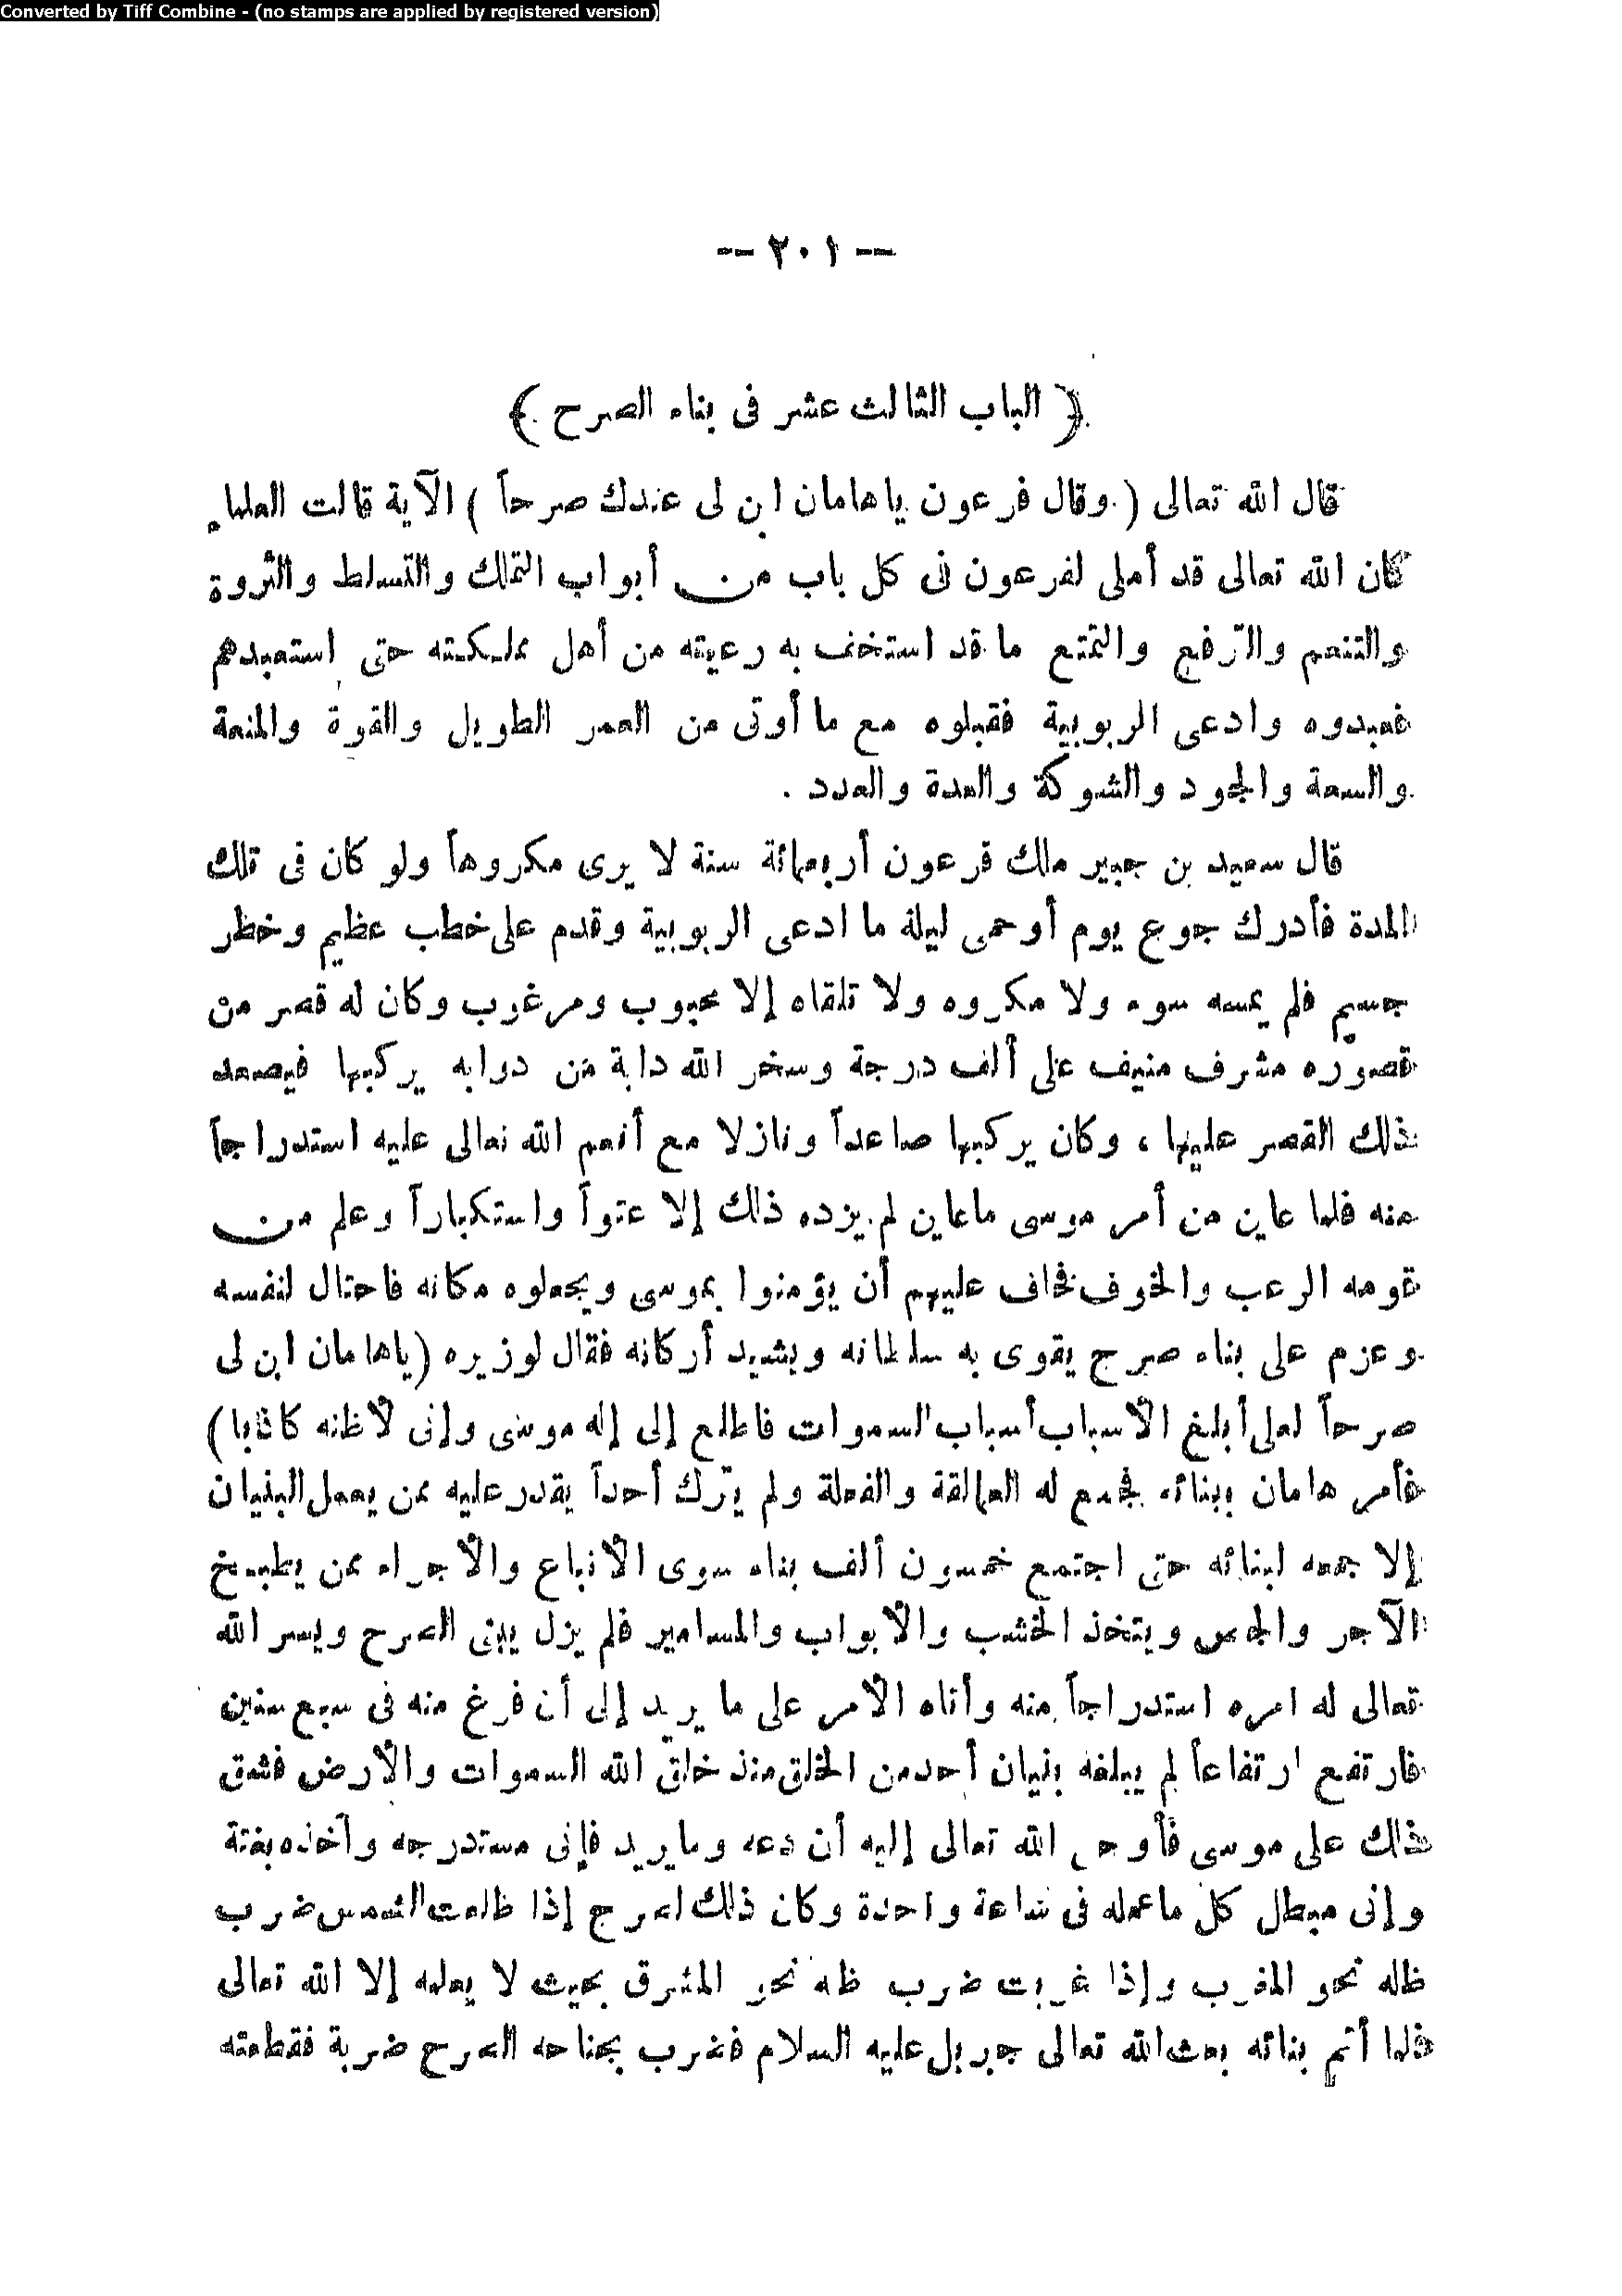 Converted by Tiff Combine - (no stamps are applied by registered version)
-- ٢٠١ --
﴿ الباب الثالث عشر فى بناء الصرح ﴾
قال الله تعالى (وقال فرعون ياهامان ابن لى عندك صرحاً) الآية قالت العلماء
كان الله تعالى قد أملى لفرعون فى كل باب من أبواب التملك والتسلط والثروة
والتنعم والترفع والتمتع ما قد استخف به رعيته من أهل مملكته حتى استعبدهم
فعبدوه وادعى الربوبية فقبلوه مع ما أوتى من العمر الطويل والقوة والمنعة
والسعة والجود والشوكة والعدة والعدد .
قال سعيد بن جبير ملك فرعون أربعمائة سنة لا يرى مكروهاً ولو كان فى تلك
المدة فأدرك جوع يوم أو حمى ليلة ما ادعى الربوبية وقدم على خطب عظيم وخطر
جسيم فلم يمسه سوء ولا مكروه ولا تلقاه إلا محبوب ومرغوب وكان له قصر من
قصوره مشرف منيف على ألف درجة وسخر الله دابة من دوابه يركبها فيصعد
ذلك القصر عليها ، وكان يركبها صاعداً ونازلا مع أنعم الله تعالى عليه استدراجاً
منه فلما عاين من أمر موسى ماعاين لم يزده ذلك إلا عتواً واستكباراً وعلم من
قومه الرعب والخوف نخاف عليهم أن يؤمنوا بموسى ويجعلوه مكانه فاحتال لنفسه
وعزم على بناء صرح يقوى به سلطانه ويشيد أركانه فقال لوزيره (ياهامان ابن لى
صرحاً لعلى أبلغ الأسباب أسباب السموات فاطلع إلى إله موسى وإنى لأظنه كاذبا)
فأمر هامان ببنائه فجمع له العمالقة والفعلة ولم يترك أحداً يقدر عليه ممن يعمل البنيان
إلا جمعه لبنائه حتى اجتمع خمسون ألف بناء سوى الأتباع والأجراء ممن يطبخ
الآجر والجص ويتخذ الخشب والأبواب والمسامير فلم يزل يبنى الصرح ويسر الله
تعالى له امره استدراجاً منه وأتاه الأمر على ما يريد إلى أن فرغ منه فى سبع سنين
فارتفع ارتفاعاً لم يبلغه بنيان أحد من الخلق منذ خلق الله السموات والأرض فشق
ذلك على موسى فأوحى الله تعالى إليه أن دعه وما يريد فإنى مستدرجه وآخذه بغتة
وإنى مبطل كل ماعمله فى ساعة واحدة وكان ذلك الصرح إذا طلعت الشمس ضرب
ظله نحو المغرب وإذا غربت ضرب ظله نحو المشرق بحيث لا يعلمه إلا الله تعالى
فلما أتم بنائه بعث الله تعالى جبريل عليه السلام فضرب بجناحه الصرح ضربة فقطعته